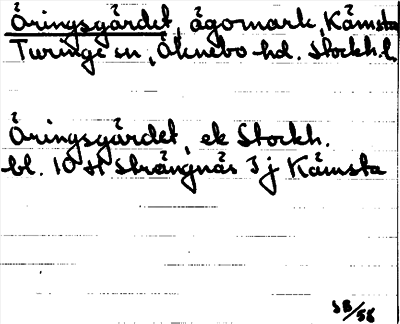 Åringsgärdet, ägomark, Kämsta
Turinge sn, Öknebo hd. Stockh.l.
Åringsgärdet, ek Stockh.
bl. 10 H Strängnäs 3j Kämsta
SB/58